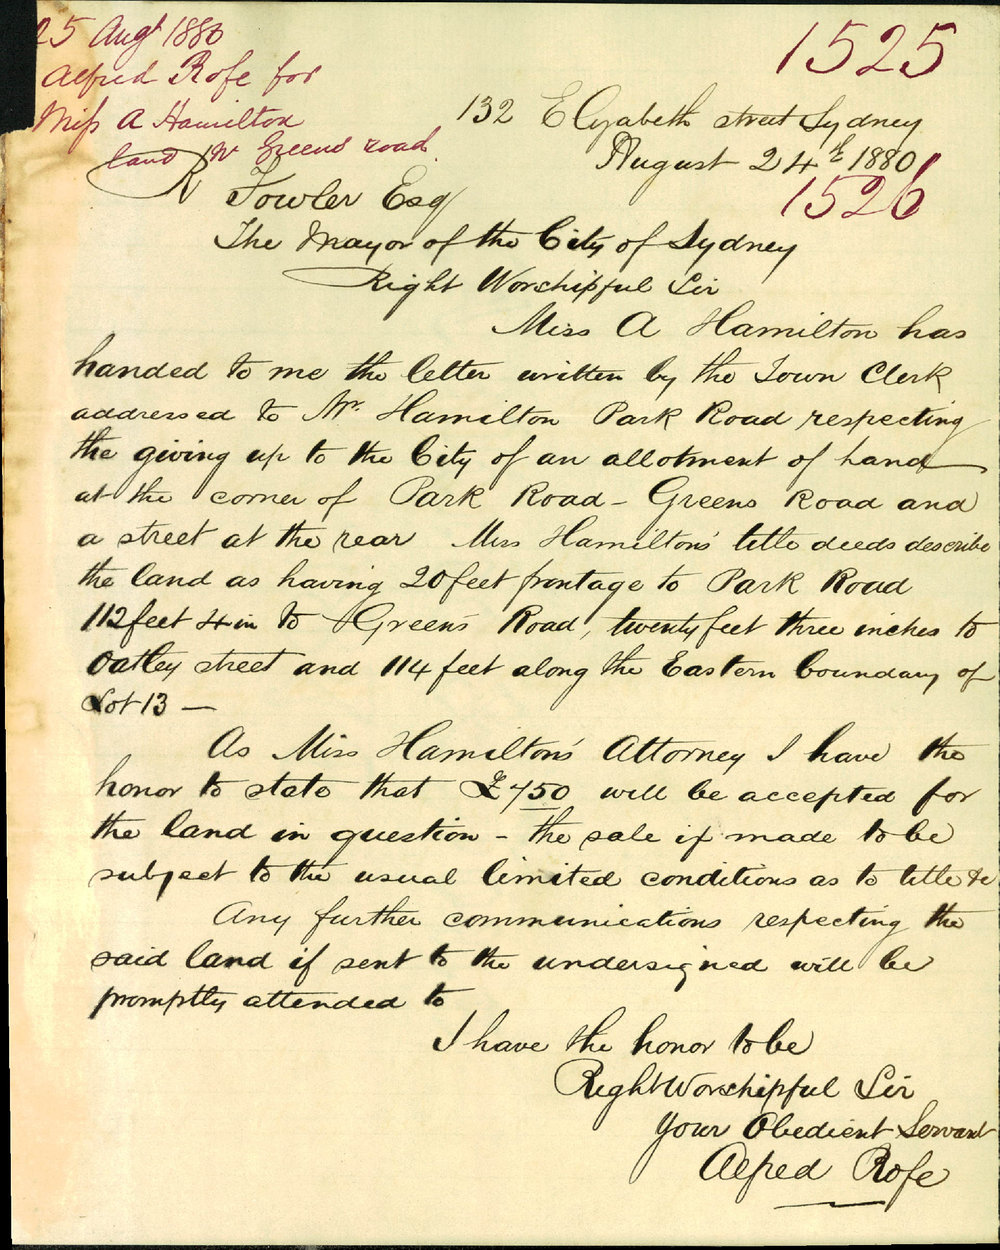 25 Augt 1880
Alfred Rofe for
Miss A Hamilton
land Greens road
1525
132 Elizabeth street Sydney
August 24th 1880
1526
R Fowler Esq
The Mayor of the City of Sydney
Right Worshipful Sir
Miss A Hamilton has
handed to me the letter written by the Town Clerk
addressed to Mr. Hamilton Park Road respecting
the giving up to the City of an allotment of Land
at the corner of Park Road - Greens Road and
a street at the rear Miss Hamiltons' title deeds describe
the land as having 20 feet frontage to Park Road
112 feet 4 in to Green's Road, twenty feet three inches to
Oatley street and 114 feet along the Eastern boundary of
Lot 13 —
As Miss Hamilton's Attorney I have the
honor to state that £750 will be accepted for
the land in question - the sale if made to be
subject to the usual limited conditions as to title &c
Any further communications respecting the
said land if sent to the undersigned will be
promptly attended to
I have the honor to be
Right Worshipful Sir
Your Obedient Servant
Alfred Rofe